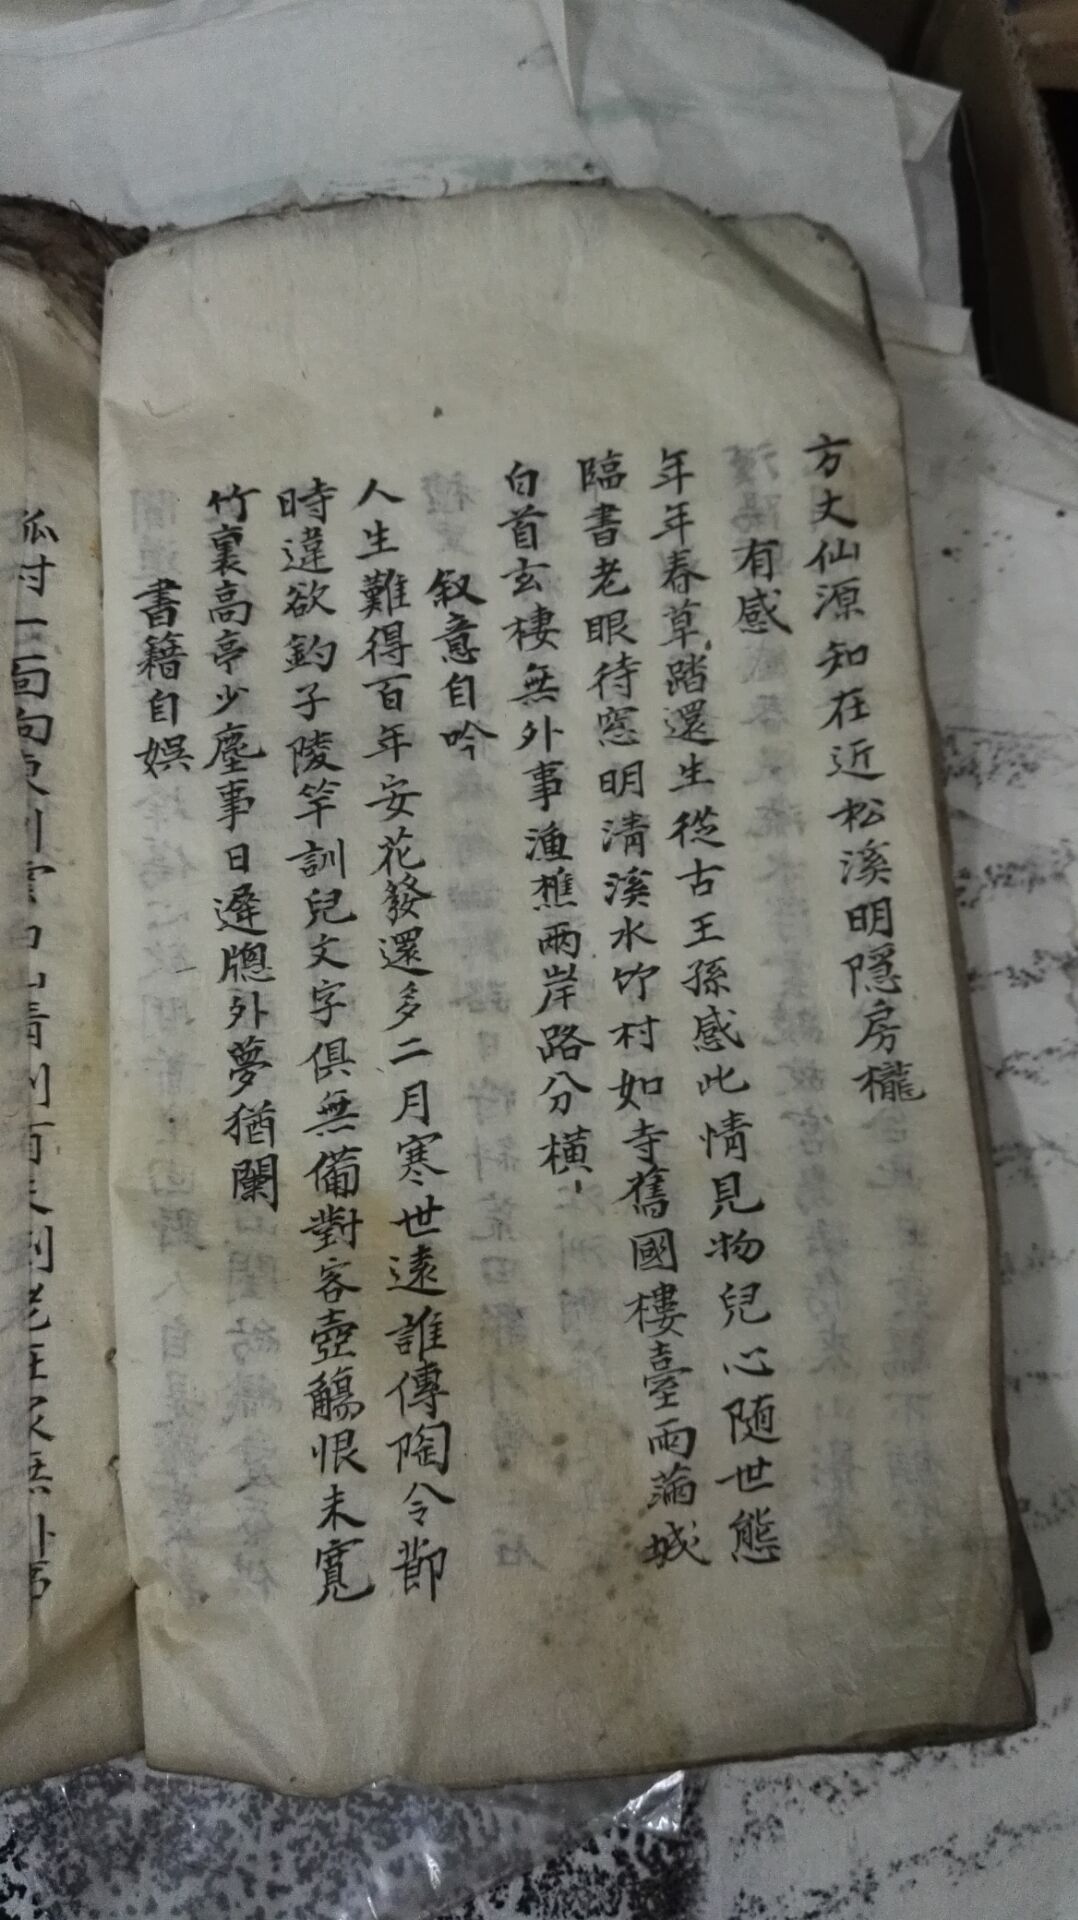 方丈仙源知在近松溪明隱房櫳
有感
年年春草踏還生從古王孫感此情見物兒心随世態
臨書老眼待窓明清溪水竹村如寺舊國樓臺雨滿城
白首玄棲無外事漁樵兩岸路分橫
叙意自吟
人生難得百年安花發還多二月寒世遠誰傳陶令節
時違欲釣子陵竿訓兒文字俱無備對客壺觴恨未寬
竹裏高亭少塵事日遲牕外夢猶闌
書籍自娯